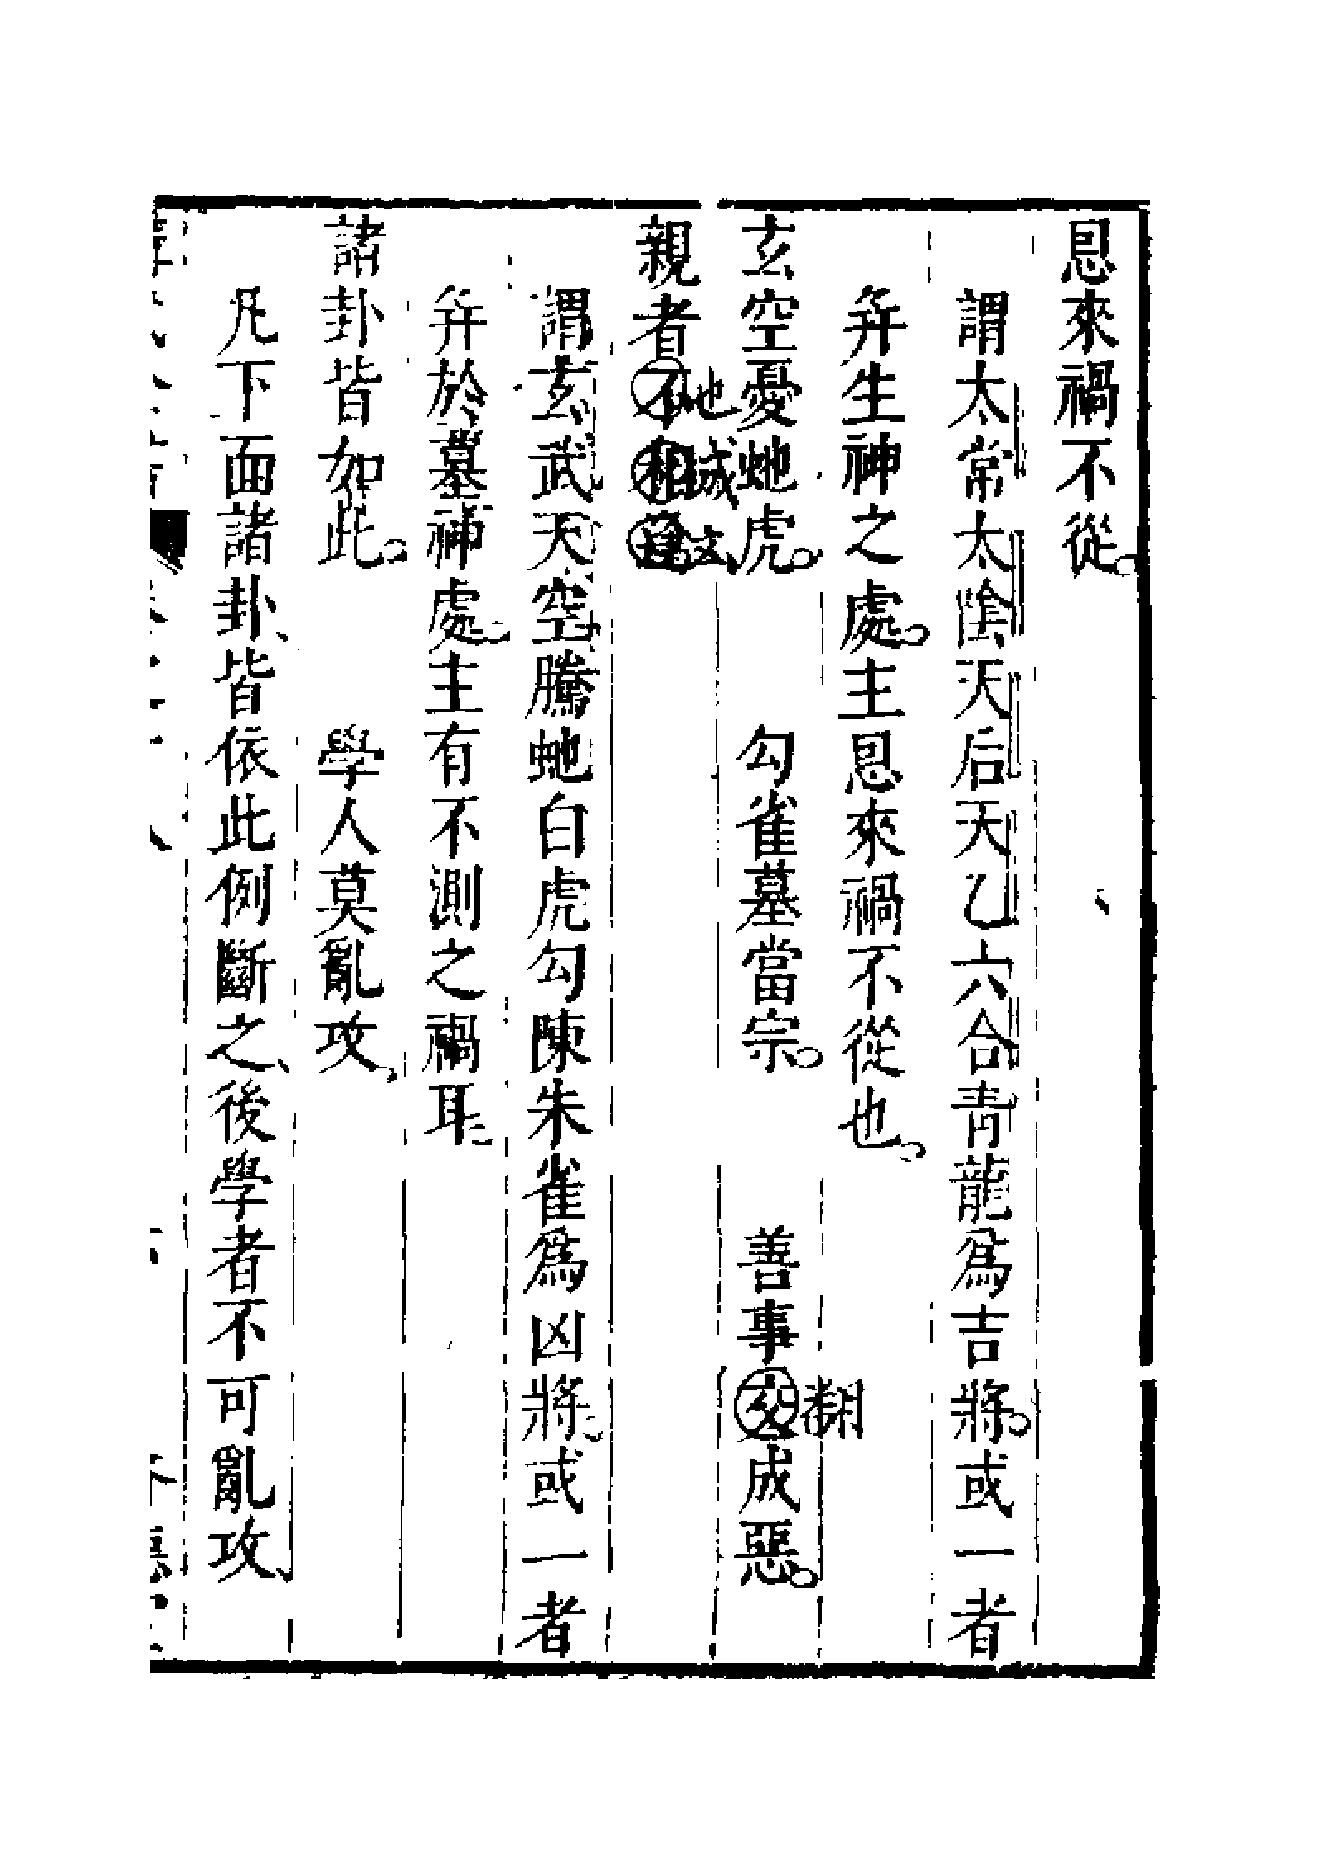 恩來禍不從
謂太常太陰天后天乙六合青龍爲吉將或一者
并生神之處主恩來禍不從也
玄空憂虵虎　勾雀墓當宗　善事翻成惡
親者
謂玄武天空騰虵白虎勾陳朱雀爲凶將或一者
并於墓神處主有不測之禍耳
諸卦皆如此　學人莫亂攻
凡下面諸卦皆依此例斷之後學者不可亂攻